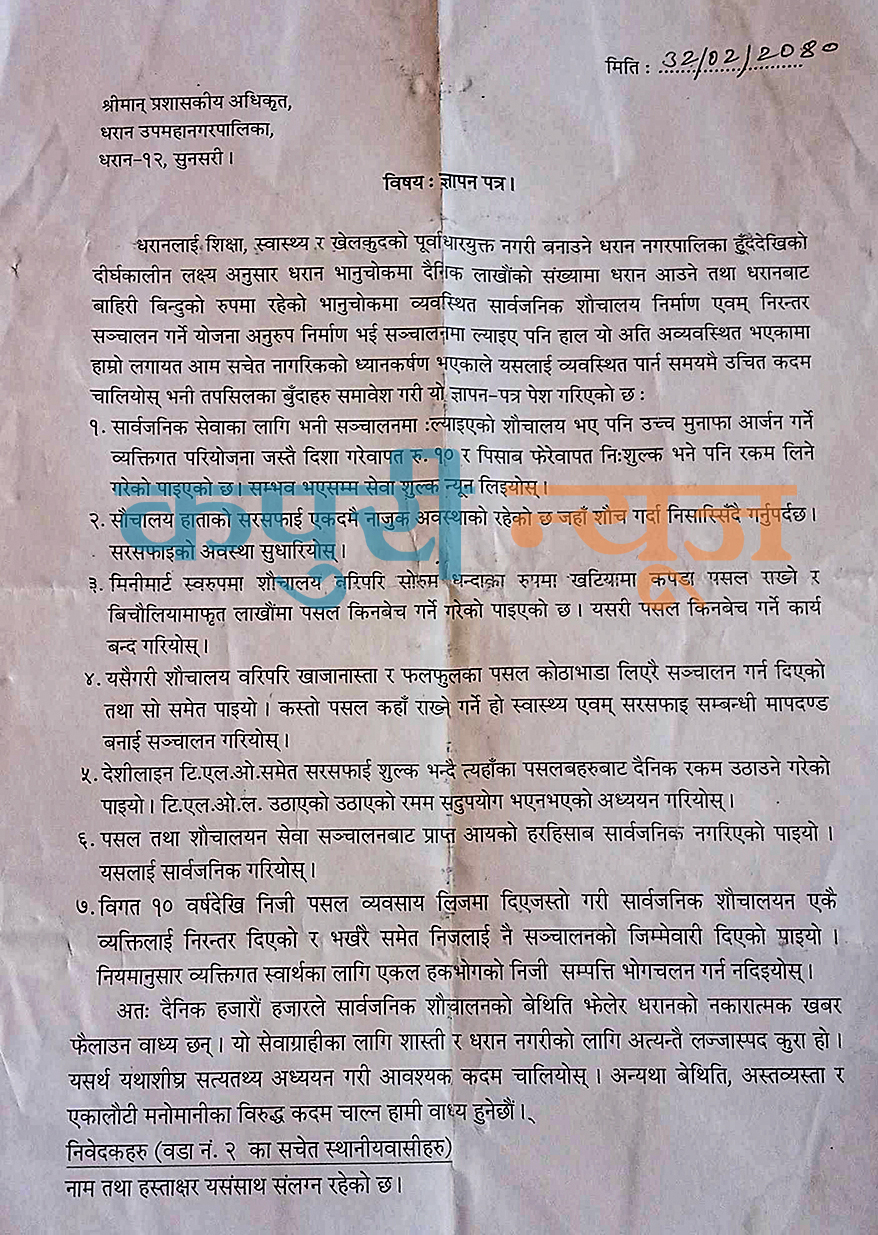 मिति : 32/02/2080
श्रीमान् प्रशासकीय अधिकृत,
धरान उपमहानगरपालिका,
धरान-१२, सुनसरी ।
विषय : ज्ञापन पत्र ।
धरानलाई शिक्षा, स्वास्थ्य र खेलकुदको पूर्वाधारयुक्त नगरी बनाउने धरान नगरपालिका हुँददेखिको
दीर्घकालीन लक्ष्य अनुसार धरान भानुचोकमा दैनिक लाखौंको संख्यामा धरान आउने तथा धरानबाट
बाहिरी बिन्दुको रुपमा रहेको भानुचोकमा व्यवस्थित सार्वजनिक शौचालय निर्माण एवम् निरन्तर
सञ्चालन गर्ने योजना अनुरुप निर्माण भई सञ्चालनमा ल्याइए पनि हाल यो अति अव्यवस्थित भएकामा
हाम्रो लगायत आम सचेत नागरिकको ध्यानकर्षण भएकाले यसलाई व्यवस्थित पार्न समयमै उचित कदम
चालियोस् भनी तपसिलका बुँदाहरु समावेश गरी यो ज्ञापन-पत्र पेश गरिएको छ :
१. सार्वजनिक सेवाका लागि भनी सञ्चालनमा ल्याइएको शौचालय भए पनि उच्च मुनाफा आर्जन गर्ने
व्यक्तिगत परियोजना जस्तै दिशा गरेवापत रु. १० र पिसाब फेरेवापत निःशुल्क भने पनि रकम लिने
गरेको पाइएको छ । सम्भव भएसम्म सेवा शुल्क न्यून लिइयोस् ।
२. सौचालय हाताको सरसफाई एकदमै नाजुक अवस्थाको रहेको छ जहाँ शौच गर्दा निसास्सिँदै गर्नुपर्दछ ।
सरसफाइको अवस्था सुधारियोस् ।
३. मिनीमार्ट स्वरुपमा शौचालय वरिपरि सोरुम धन्दाका रुपमा खटियामा कपडा पसल राख्ने र
बिचौलियामाफृत लाखौंमा पसल किनबेच गर्ने गरेको पाइएको छ । यसरी पसल किनबेच गर्ने कार्य
बन्द गरियोस् ।
४. यसैगरी शौचालय वरिपरि खाजानास्ता र फलफुलका पसल कोठाभाडा लिएरै सञ्चालन गर्न दिएको
तथा सो समेत पाइयो । कस्तो पसल कहाँ राख्ने गर्ने हो स्वास्थ्य एवम् सरसफाइ सम्बन्धी मापदण्ड
बनाई सञ्चालन गरियोस् ।
५. देशीलाइन टि.एल.ओ.समेत सरसफाई शुल्क भन्दै त्यहाँका पसलबहरुबाट दैनिक रकम उठाउने गरेको
पाइयो । टि.एल.ओ.ल. उठाएको उठाएको रमम सदुपयोग भएनभएको अध्ययन गरियोस् ।
६. पसल तथा शौचालयन सेवा सञ्चालनबाट प्राप्त आयको हरहिसाब सार्वजनिक नगरिएको पाइयो ।
यसलाई सार्वजनिक गरियोस् ।
७. विगत १० वर्षदेखि निजी पसल व्यवसाय लिजमा दिएजस्तो गरी सार्वजनिक शौचालयन एकै
व्यक्तिलाई निरन्तर दिएको र भर्खरै समेत निजलाई नै सञ्चालनको जिम्मेवारी दिएको पाइयो ।
नियमानुसार व्यक्तिगत स्वार्थका लागि एकल हकभोगको निजी सम्पत्ति भोगचलन गर्न नदिइयोस् ।
अतः दैनिक हजारौं हजारले सार्वजनिक शौचालनको बेथिति झेलेर धरानको नकारात्मक खबर
फैलाउन वाध्य छन् । यो सेवाग्राहीका लागि शास्ती र धरान नगरीको लागि अत्यन्तै लज्जास्पद कुरा हो ।
यसर्थ यथाशीघ्र सत्यतथ्य अध्ययन गरी आवश्यक कदम चालियोस् । अन्यथा बेथिति, अस्तव्यस्ता र
एकालौटी मनोमानीका विरुद्ध कदम चाल्न हामी वाध्य हुनेछौं ।
निवेदकहरु (वडा नं. २ का सचेत स्थानीयवासीहरु)
नाम तथा हस्ताक्षर यसंसाथ संलग्न रहेको छ ।
कपुरी न्यूज